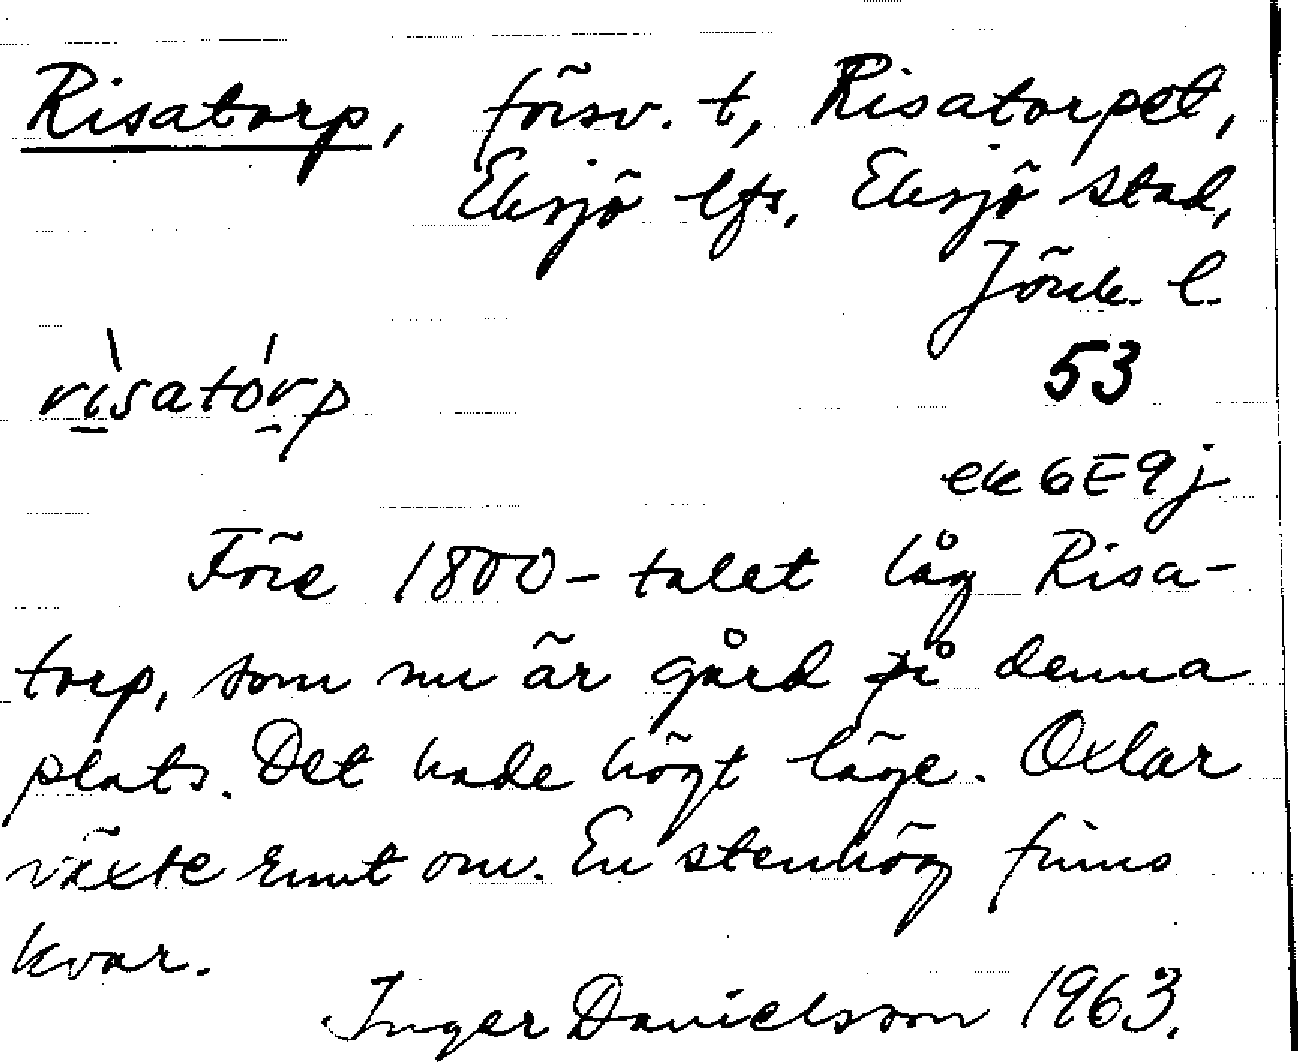 Risatorp, försv. t, Risatorpet,
Eksjö lfs, Eksjö stad,
Jönk. l.
rìsatórp
53
ek 6E9j
Före 1800-talet låg Risa-
torp, som nu är gård på denna
plats. Det hade högt läge. Oxlar
växte runt om. En stenhög finns
kvar.
Inger Danielsson 1963.